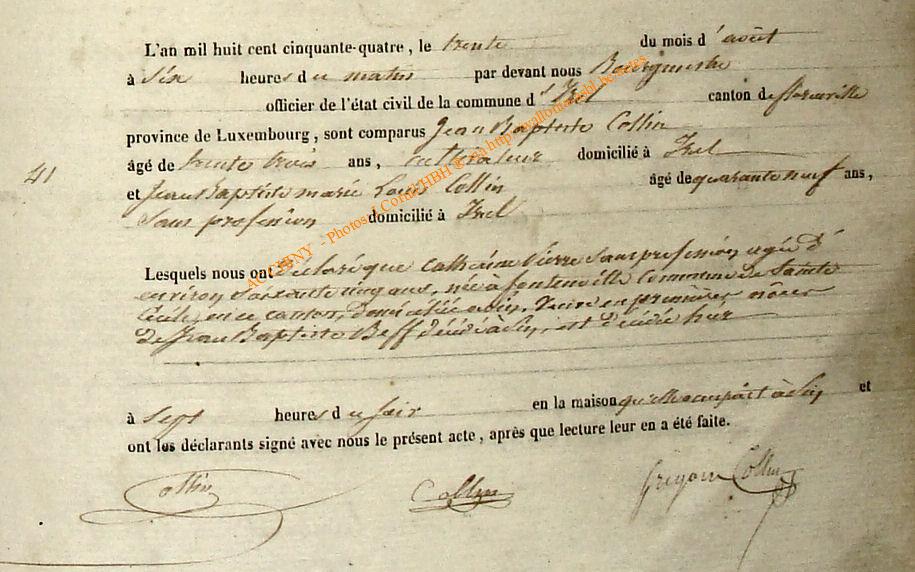 L'an mil huit cent cinquante-quatre, le trente du mois d'août
à Six heures du matin par devant nous Bourgmestre
officier de l'état civil de la commune d'Izel canton de florenville
province de Luxembourg, sont comparus Jean Baptiste Collin
âgé de trente trois ans, cultivateur domicilié à Izel
41
et Jean Baptiste marie Louis Collin âgé de quarante neuf ans,
Sans profession domicilié à Izel
Lesquels nous ont déclaré que Catherine Pierre Sans profession, agée d'
environ Soixante cinq ans, née à fontenoille Commune de Sainte
Cécile, en ce canton, domiciliée à Pin, Veuve en premières nôces
de Jean Baptiste Beff décédé à Pin, est décédée hier
à Sept heures du Soir en la maison qu'elle occupait à Pin et
ont les déclarants signé avec nous le présent acte, après que lecture leur en a été faite.
Collin Collin Grégoire Collin
AC CHINY - Photos J.Cornil/HBH